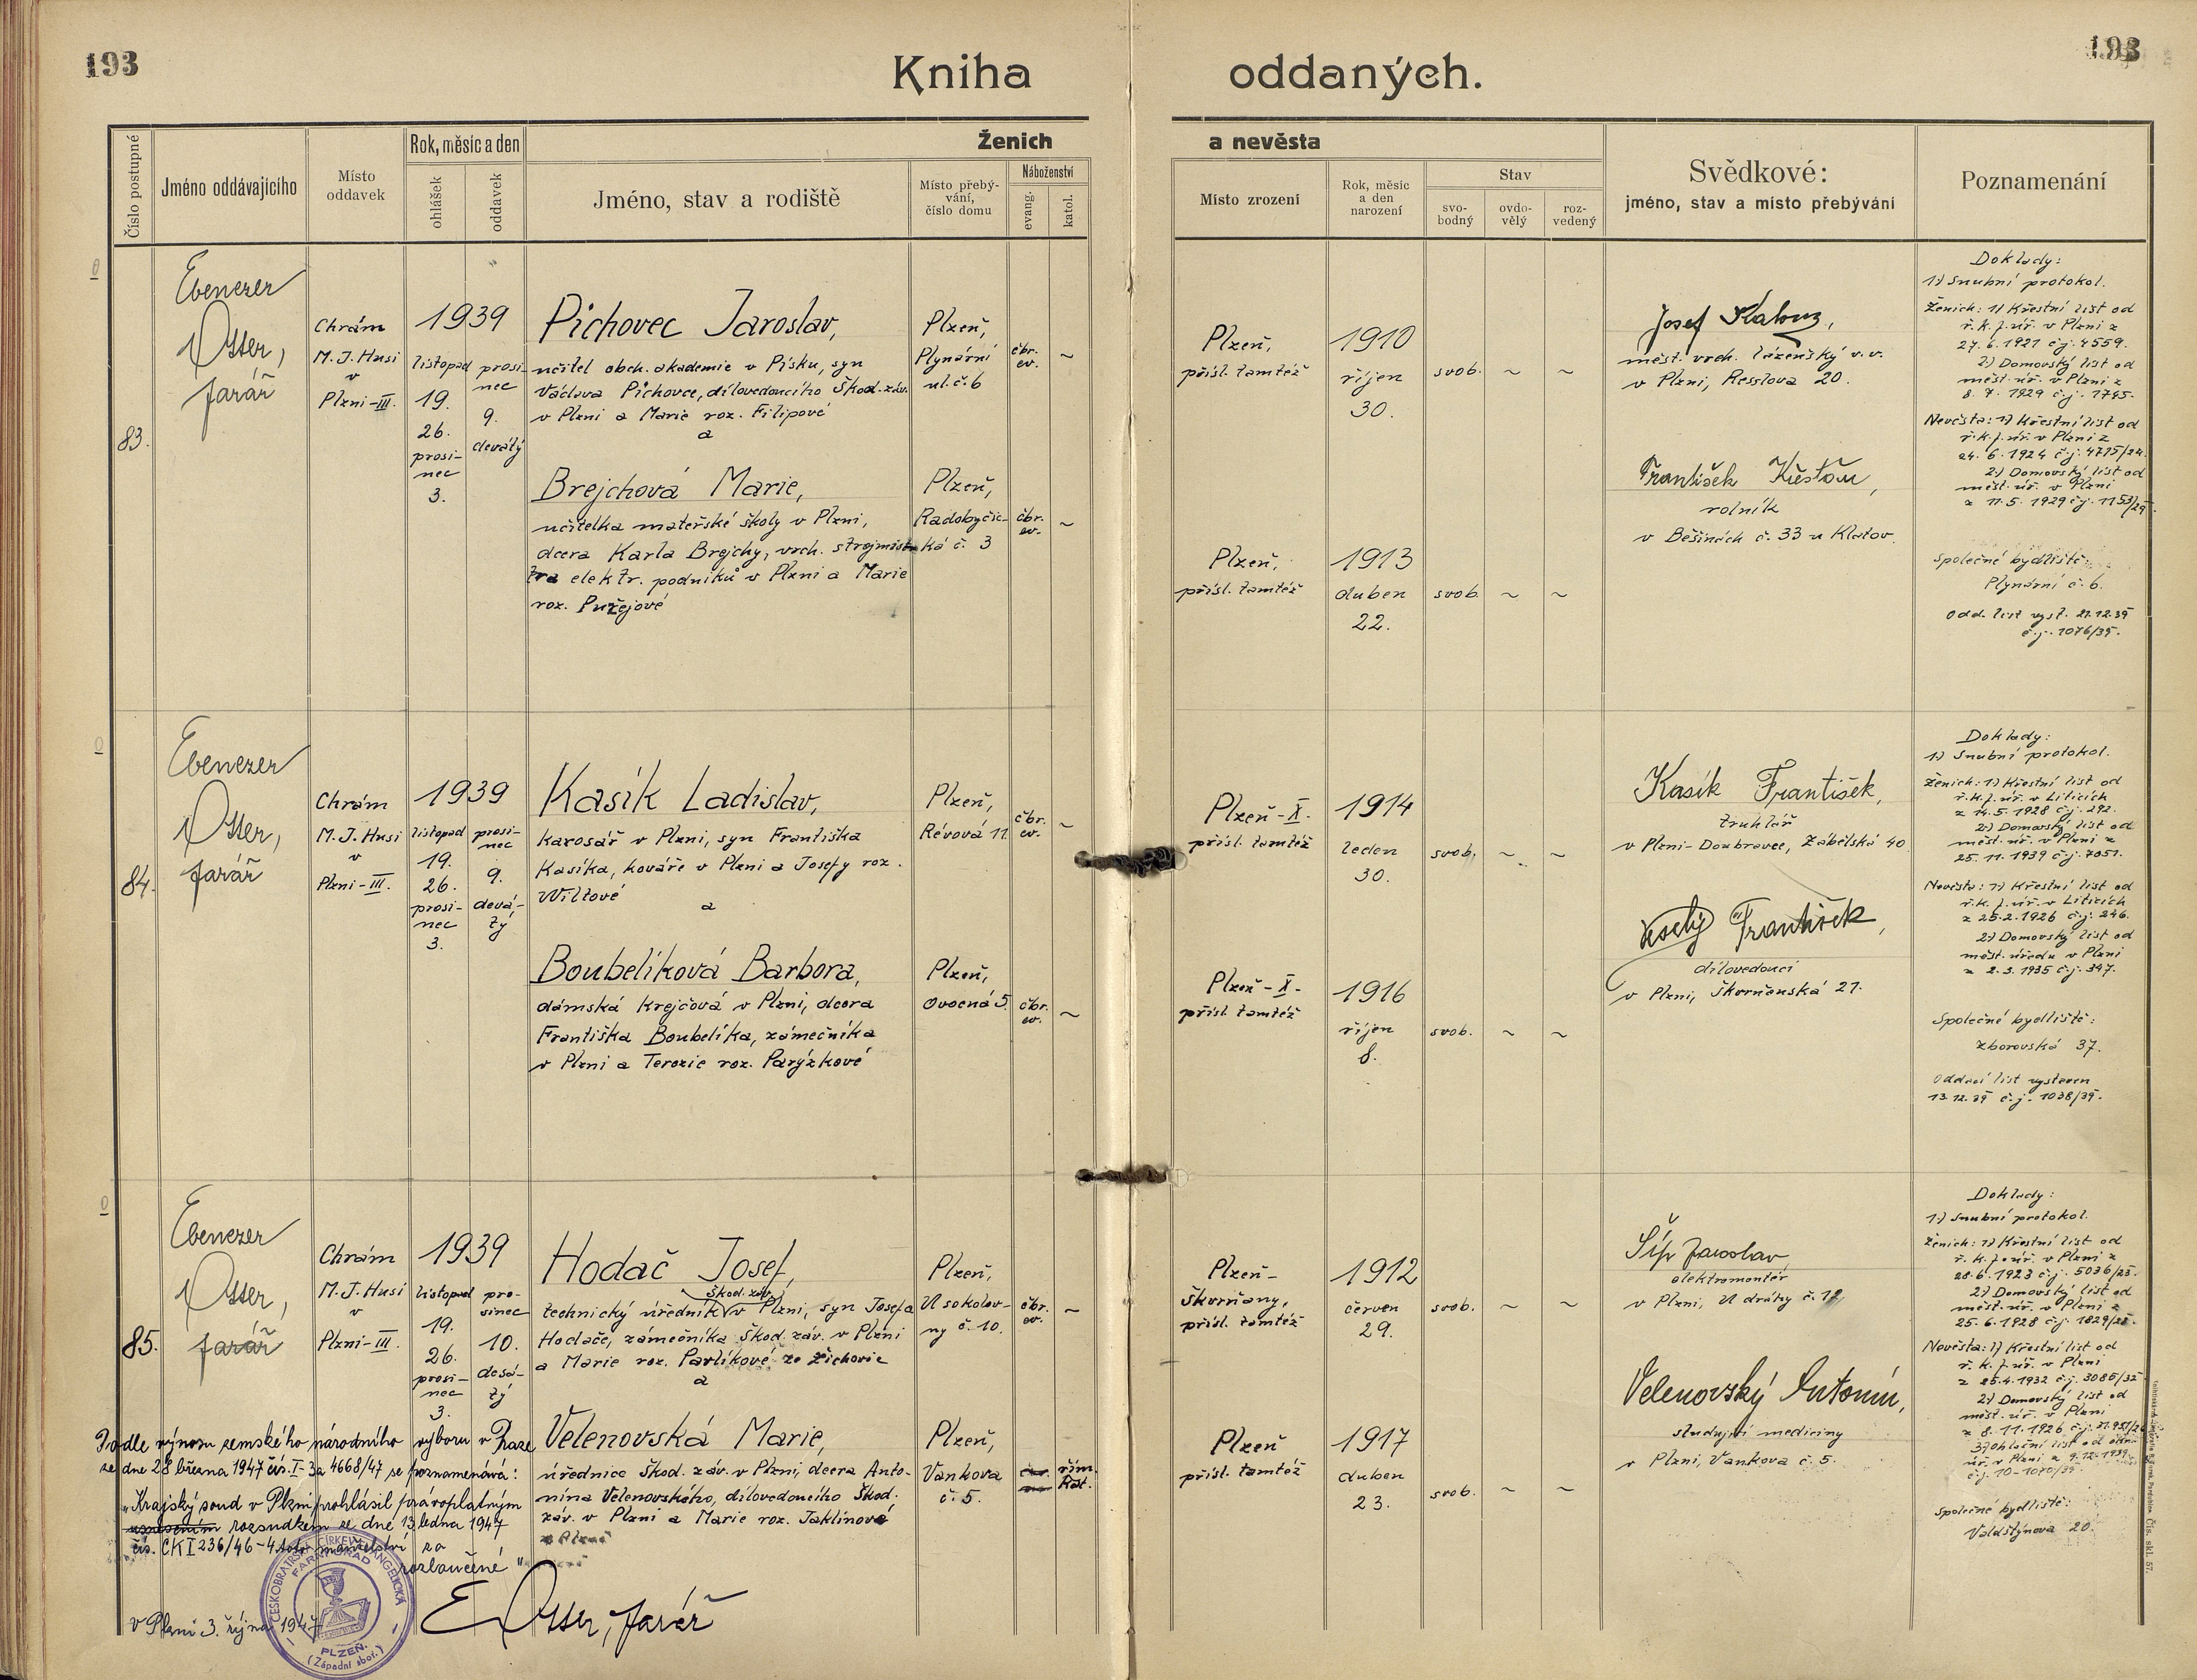 193
193
Kniha oddaných.
Číslo postupné
Jméno oddávajícího
Místo
oddavek
Rok, měsíc a den
ohlášek
oddavek
Ženich
a nevěsta
Jméno, stav a rodiště
Místo přebý-
vání,
číslo domu
Náboženství
evang.
katol.
Místo zrození
Rok, měsíc
a den
narození
Stav
svo-
bodný
ovdo-
vělý
roz-
vedený
Svědkové:
jméno, stav a místo přebývání
Poznamenání
83.
Ebenezer
Otter,
farář
Chrám
M. J. Husi
v
Plzni-III.
1939
listopad
19.
26.
prosi-
nec
3.
prosi-
nec
9.
devátý
Pichovec Jaroslav,
učitel obch. akademie v Písku, syn
Václava Pichovce, dílovedoucího Škod. záv.
v Plzni a Marie roz. Filipové
a
Plzeň,
Plynární
ul. č. 6
čbr.
ev.
~
Brejchová Marie,
učitelka mateřské školy v Plzni,
dcera Karla Brejchy, vrch. strojmist-
tra elektr. podniků v Plzni a Marie
roz. Pužejové
Plzeň,
Radobyčic-
ká č. 3
čbr.
ev.
~
Plzeň,
přísl. tamtéž
1910
říjen
30.
svob.
~
~
Plzeň,
přísl. tamtéž
1913
duben
22.
svob.
~
~
Josef Kalouz,
měst. vrch. lázeňský v. v.
v Plzni, Resslova 20.
František Křešťan,
rolník
v Bešinách č. 33 u Klatov.
Doklady:
1) Snubní protokol.
Ženich: 1) Křestní list od
ř. k. f. úř. v Plzni z
27. 6. 1921 č.j. 4559.
2) Domovský list od
měst. úř. v Plzni z
8. 7. 1929 č.j. 1745.
Nevěsta: 1) Křestní list od
ř. k. f. úř. v Plzni z
24. 6. 1924 č.j. 4775/24.
2) Domovský list od
měst. úř. v Plzni
z 11. 5. 1929 č.j. 1153/29.
Společné bydliště:
Plynární č. 6.
Odd. list vyst. 21.12.39
č.j. 1076/39.
84.
Ebenezer
Otter,
farář
Chrám
M. J. Husi
v
Plzni-III.
1939
listopad
19.
26.
prosi-
nec
3.
prosi-
nec
9.
devá-
tý
Kasík Ladislav,
karosář v Plzni, syn Františka
Kasíka, kováře v Plzni a Josefy roz.
Wiltové
a
Plzeň,
Révová 11.
čbr.
ev.
~
Boubelíková Barbora,
dámská krejčová v Plzni, dcera
Františka Boubelíka, zámečníka
v Plzni a Terezie roz. Parýzkové
Plzeň,
Ovocná 5.
čbr.
ev.
~
Plzeň-X.
přísl. tamtéž
1914
leden
30.
svob.
~
~
Plzeň-X.
přísl. tamtéž
1916
říjen
8.
svob.
~
~
Kasík František,
truhlář
v Plzni-Doubravce, Zábělská 40
Veselý František,
dílovedoucí
v Plzni, Škvrňanská 21.
Doklady:
1) Snubní protokol.
Ženich: 1) Křestní list od
ř. k. f. úř. v Liticích
z 14. 5. 1928 č.j. 292.
2) Domovský list od
měst. úř. v Plzni z
25. 11. 1939 č.j. 7051.
Nevěsta: 1) Křestní list od
ř. k. f. úř. v Liticích
z 25. 2. 1926 č.j. 246.
2) Domovský list od
měst. úřadu v Plzni
z 2. 3. 1935 č.j. 347.
Společné bydliště:
Zborovská 37.
Oddací list vystaven
13.12.39 č.j. 1038/39.
85.
Ebenezer
Otter,
farář
Chrám
M. J. Husi
v
Plzni-III.
1939
listopad
19.
26.
prosi-
nec
3.
pro-
sinec
10.
desá-
tý
Hodač Josef,
Škod. záv.
technický úředník v Plzni, syn Josefa
Hodače, zámečníka Škod. záv. v Plzni
a Marie roz. Pavlíkové ze Žichovic
a
Plzeň,
U sokolov-
ny č. 10.
čbr.
ev.
~
Velenovská Marie,
úřednice Škod. záv. v Plzni, dcera Anto-
nína Velenovského, dílovedoucího Škod.
záv. v Plzni a Marie roz. Jaklínové
z Plzně
Plzeň,
Vankova
č. 5.
řím.
kat.
Plzeň-
Škvrňany,
přísl. tamtéž
1912
červen
29.
svob.
~
~
Plzeň
přísl. tamtéž
1917
duben
23.
svob.
~
~
Šíp Jaroslav,
elektromontér
v Plzni, U dráhy č. 12,
Velenovský Antonín,
studující medicíny
v Plzni, Vankova č. 5.
Doklady:
1) Snubní protokol.
Ženich: 1) Křestní list od
ř. k. f. úř. v Plzni z
28. 6. 1923 č.j. 5036/23.
2) Domovský list od
měst. úř. v Plzni z
25. 6. 1928 č.j. 1829/28.
Nevěsta: 1) Křestní list od
ř. k. f. úř. v Plzni
z 25. 4. 1932 č.j. 3085/32
2) Domovský list od
měst. úř. v Plzni
z 8. 11. 1926
3) Ohlašní list od
úř. v Plzni z 9.12.1939
č.j. 10-1070/39
Společné bydliště:
Valdštýnova 20.
Podle výnosu zemského národního výboru v Praze
ze dne 28 března 1947 čís. I-3a 4668/47 se poznamenává:
„Krajský soud v Plzni prohlásil právoplatným
usnesením rozsudkem ze dne 13. ledna 1947
čís. CK I 236/46-4 toto manželství za
rozloučené"
V Plzni 3. října 1947
E Otter, farář
ČESKOBRATRSKÁ CÍRKEV EVANGELICKÁ
FARNÍ ÚŘAD
PLZEŇ
(Západní sbor.)
Čís. skl. 57.